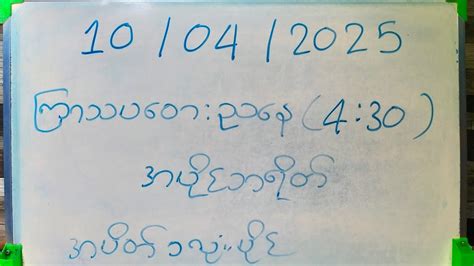 10 / 04 / 2025
ကြာသပတေးညနေ (4:30)
အပိုင်ဘရိတ်
အပိတ်၁လုံးပိုင်